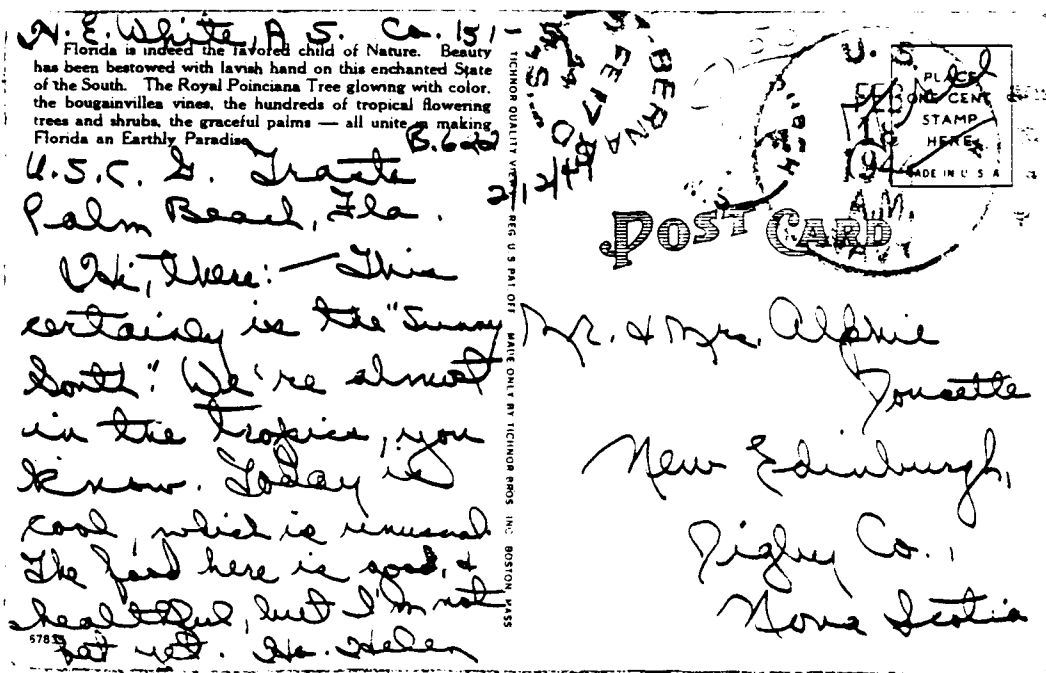 H. E. White, A. S. Co. 151-
Florida is indeed the favored child of Nature. Beauty
has been bestowed with lavish hand on this enchanted State
of the South. The Royal Poinciana Tree glowing with color,
the bougainvillea vines, the hundreds of tropical flowering
trees and shrubs, the graceful palms — all unite in making
Florida an Earthly Paradise
B.622
U.S.C. G. Tracte
Palm Beach, Fla.
2/2/44
Hi, there: — This
certainly is the "Sunny
South". We're almost
in the tropics, you
know. Today is
cool, which is unusual.
The food here is good, &
healthful, but I'm not
fat yet. Ha. Helen
57835
TICHNOR QUALITY VIEWS REG. U. S. PAT. OFF. MADE ONLY BY TICHNOR BROS. INC. BOSTON, MASS
U. S.
FEB
194
AM
PLACE
ONE CENT
STAMP
HERE
MADE IN U S A
POST CARD
Mr. & Mrs. Alphie
Doucette
New Edinburgh,
Digby Co.,
Nova Scotia